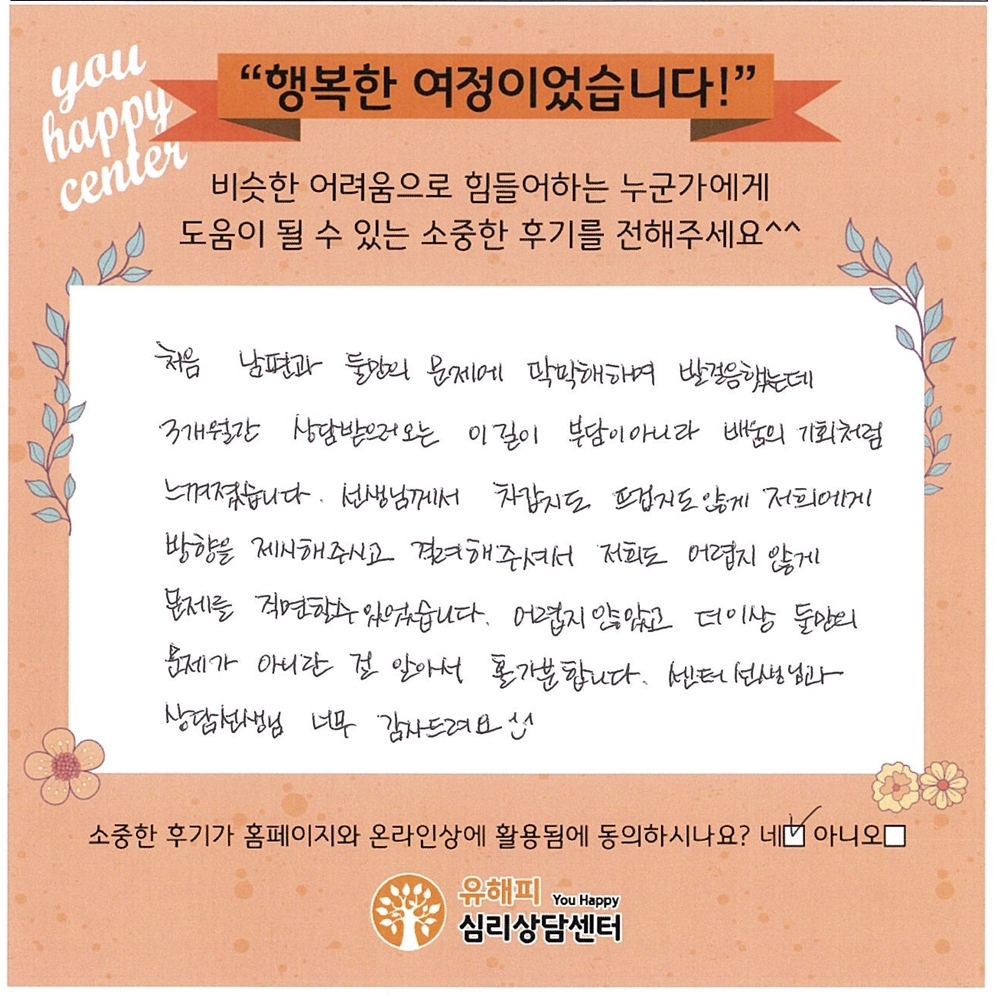 you
happy
center
“행복한 여정이었습니다!”
비슷한 어려움으로 힘들어하는 누군가에게
도움이 될 수 있는 소중한 후기를 전해주세요^^
처음 남편과 둘만의 문제에 막막해하며 발걸음했는데
3개월간 상담받으러오는 이길이 부담이아니라 배움의 기회처럼
느껴졌습니다. 선생님께서 차갑지도 뜨겁지도않게 저희에게
방향을 제시해주시고 격려해주셔서 저희도 어렵지 않게
문제를 직면할수있었습니다. 어렵지않았고 더이상 둘만의
문제가 아니란 걸 알아서 홀가분합니다. 센터선생님과
상담선생님 너무 감사드려요
소중한 후기가 홈페이지와 온라인상에 활용됨에 동의하시나요? 네 아니오
유해피 You Happy
심리상담센터